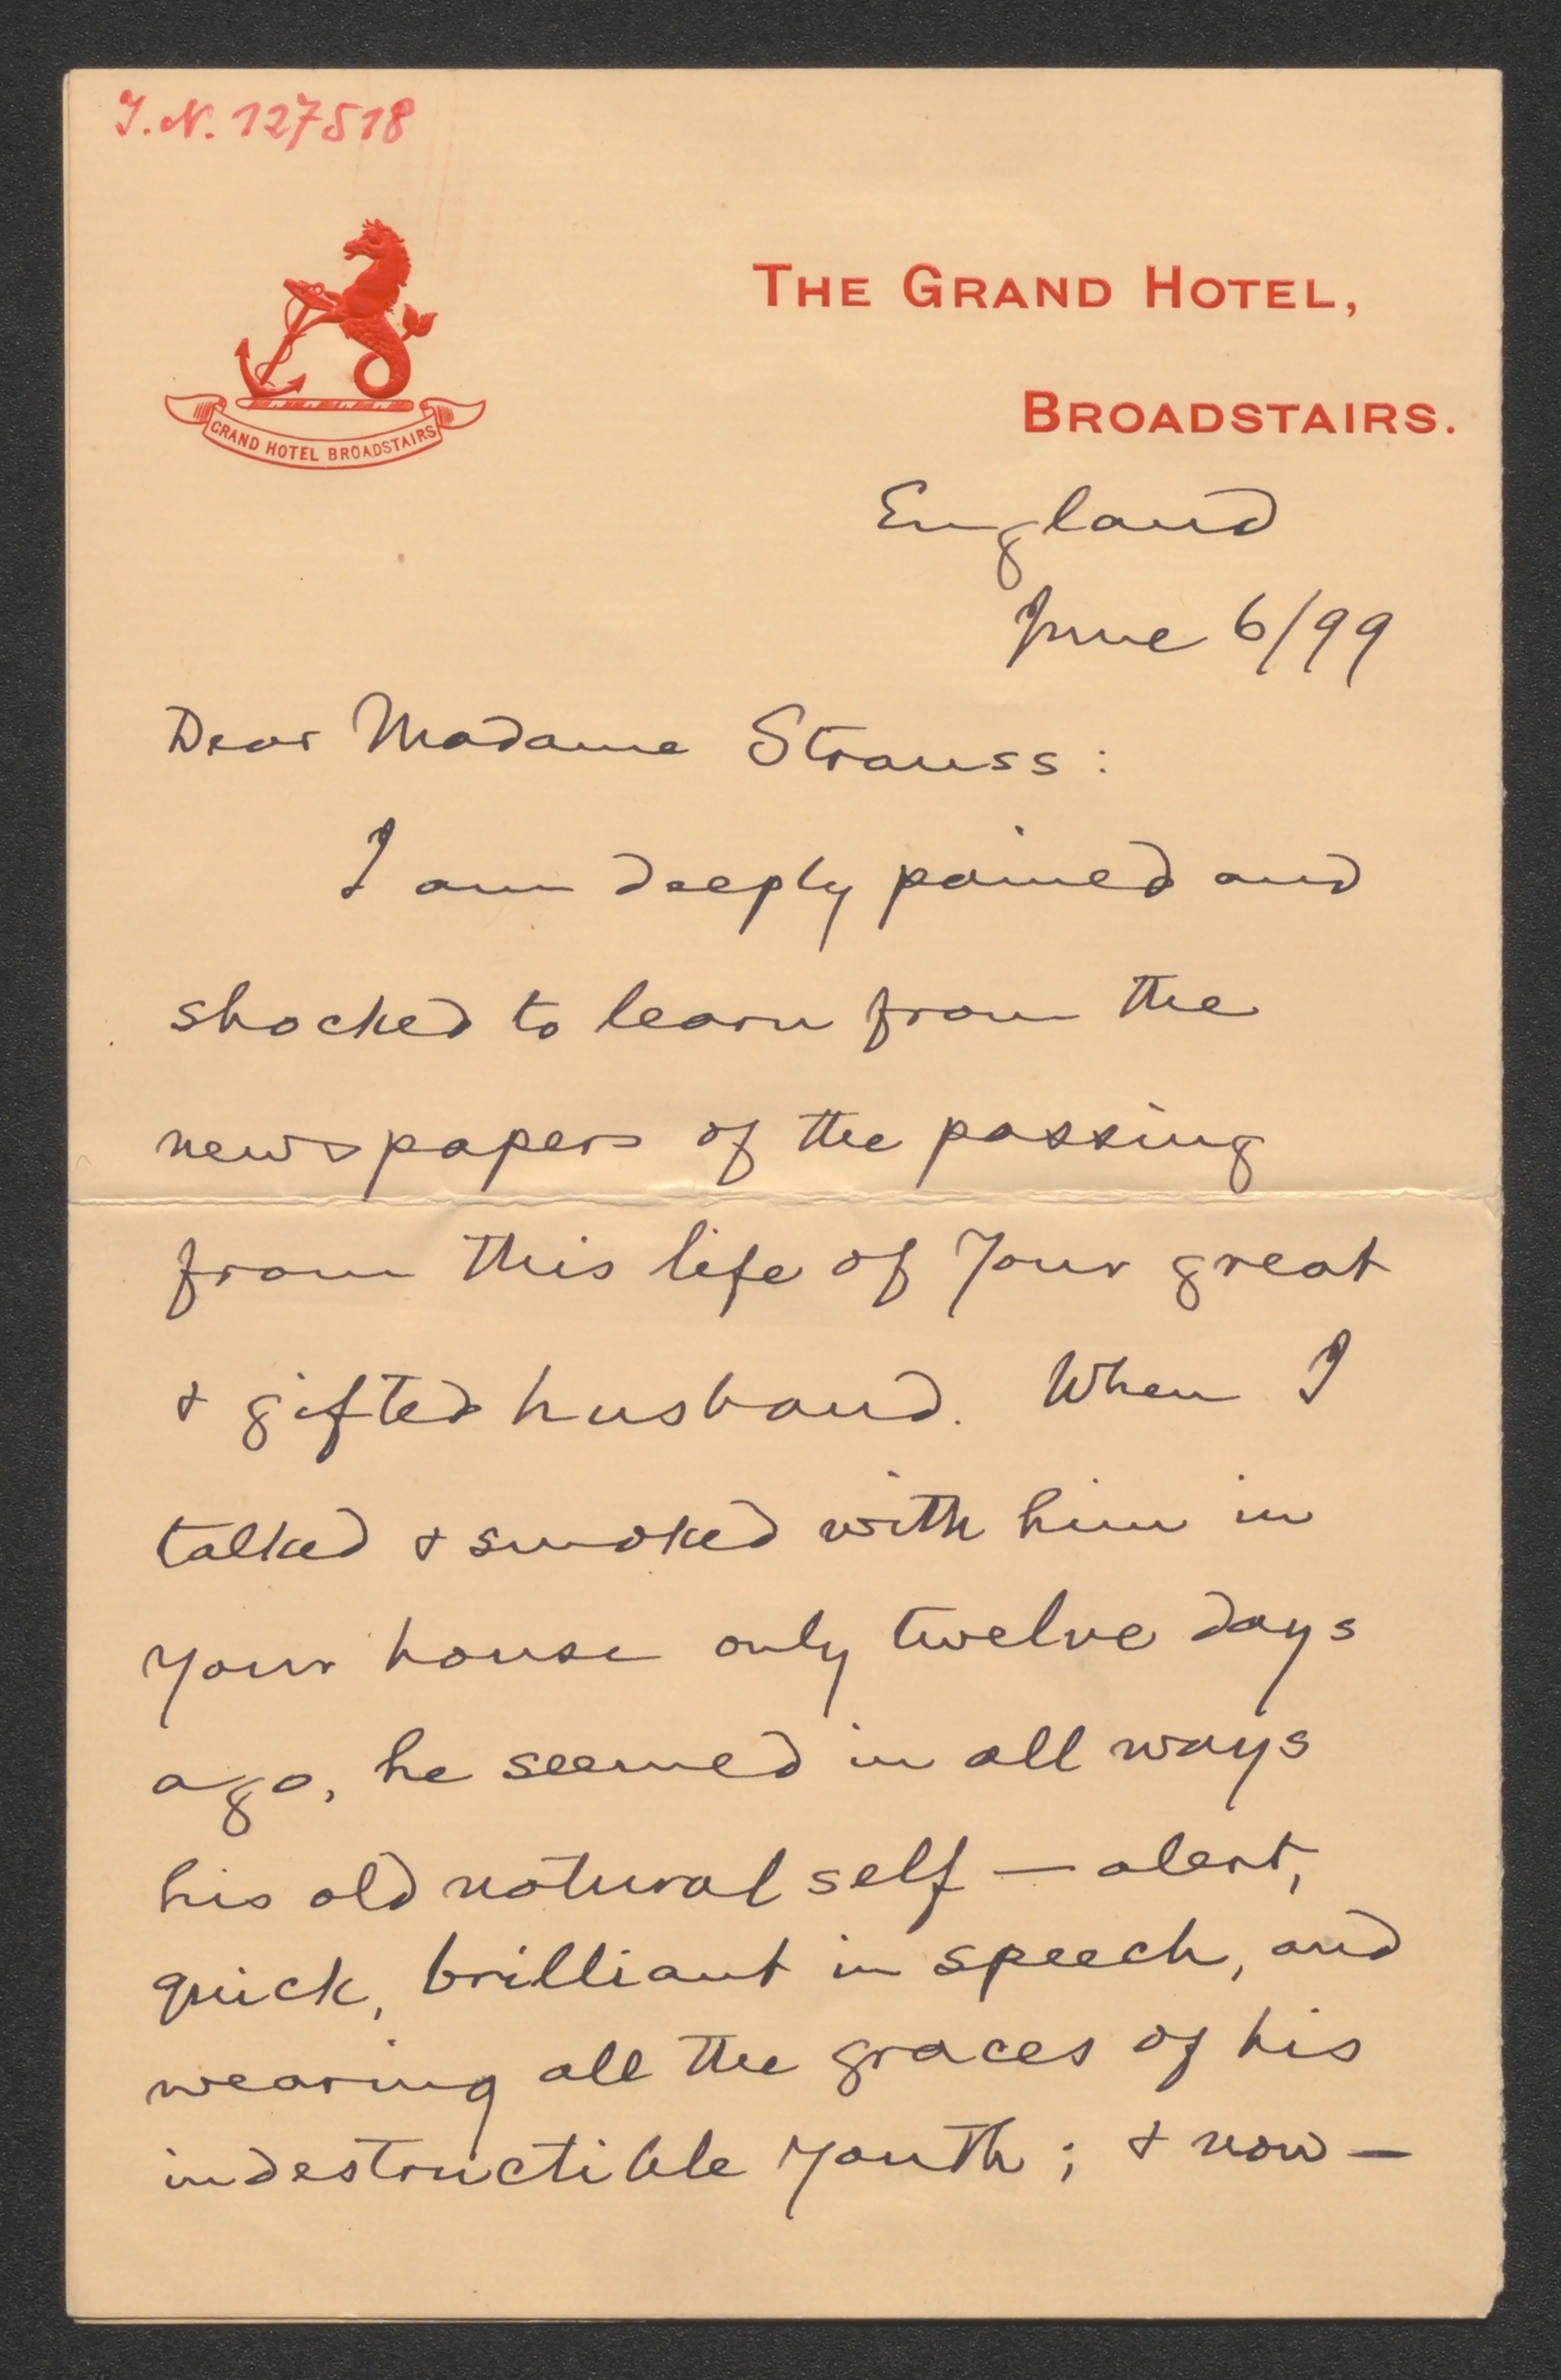 J.N. 127518
GRAND HOTEL BROADSTAIRS
THE GRAND HOTEL,
BROADSTAIRS.
England
June 6/99
Dear Madame Strauss:
I am deeply pained and
shocked to learn from the
newspapers of the passing
from this life of your great
& gifted husband. When I
talked & smoked with him in
your house only twelve days
ago, he seemed in all ways
his old natural self — alert,
quick, brilliant in speech, and
wearing all the graces of his
indestructible youth; & now —